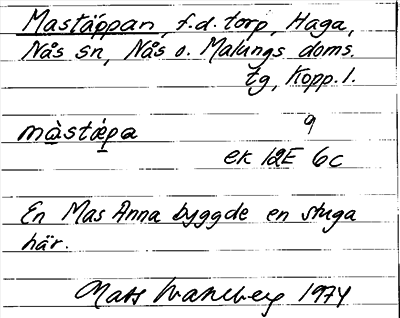 Mastäppan, f.d. torp, Haga,
Nås sn, Nås o. Malungs doms.
tg, Kopp. l.
màstæpa 9
ek 12E 6c
En Mas Anna byggde en stuga
här.
Mats Wahlberg 1974